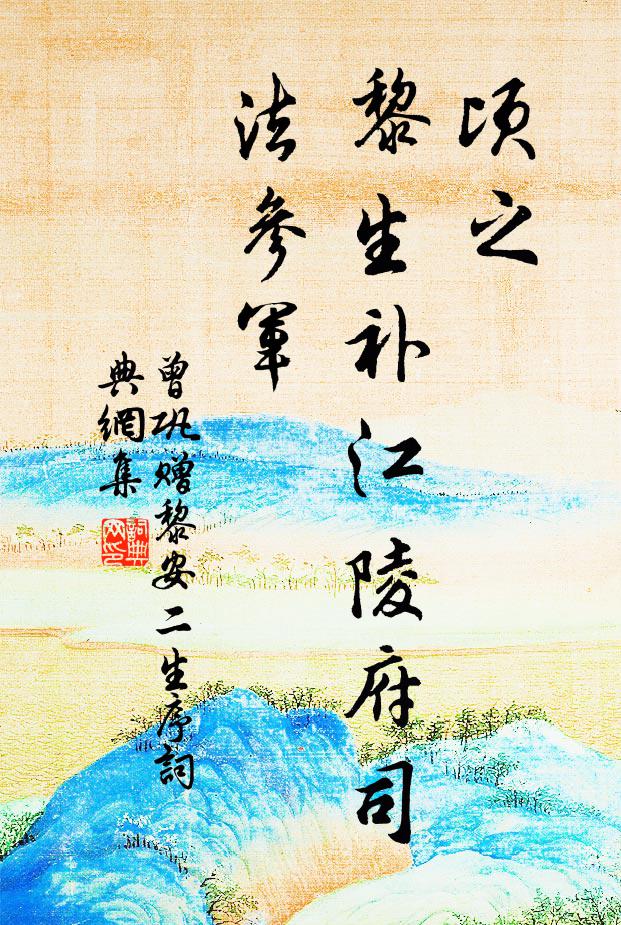 顷之
黎生补江陵府司
法参军
曾巩赠黎安二生序詞
典網集
詞典
网印